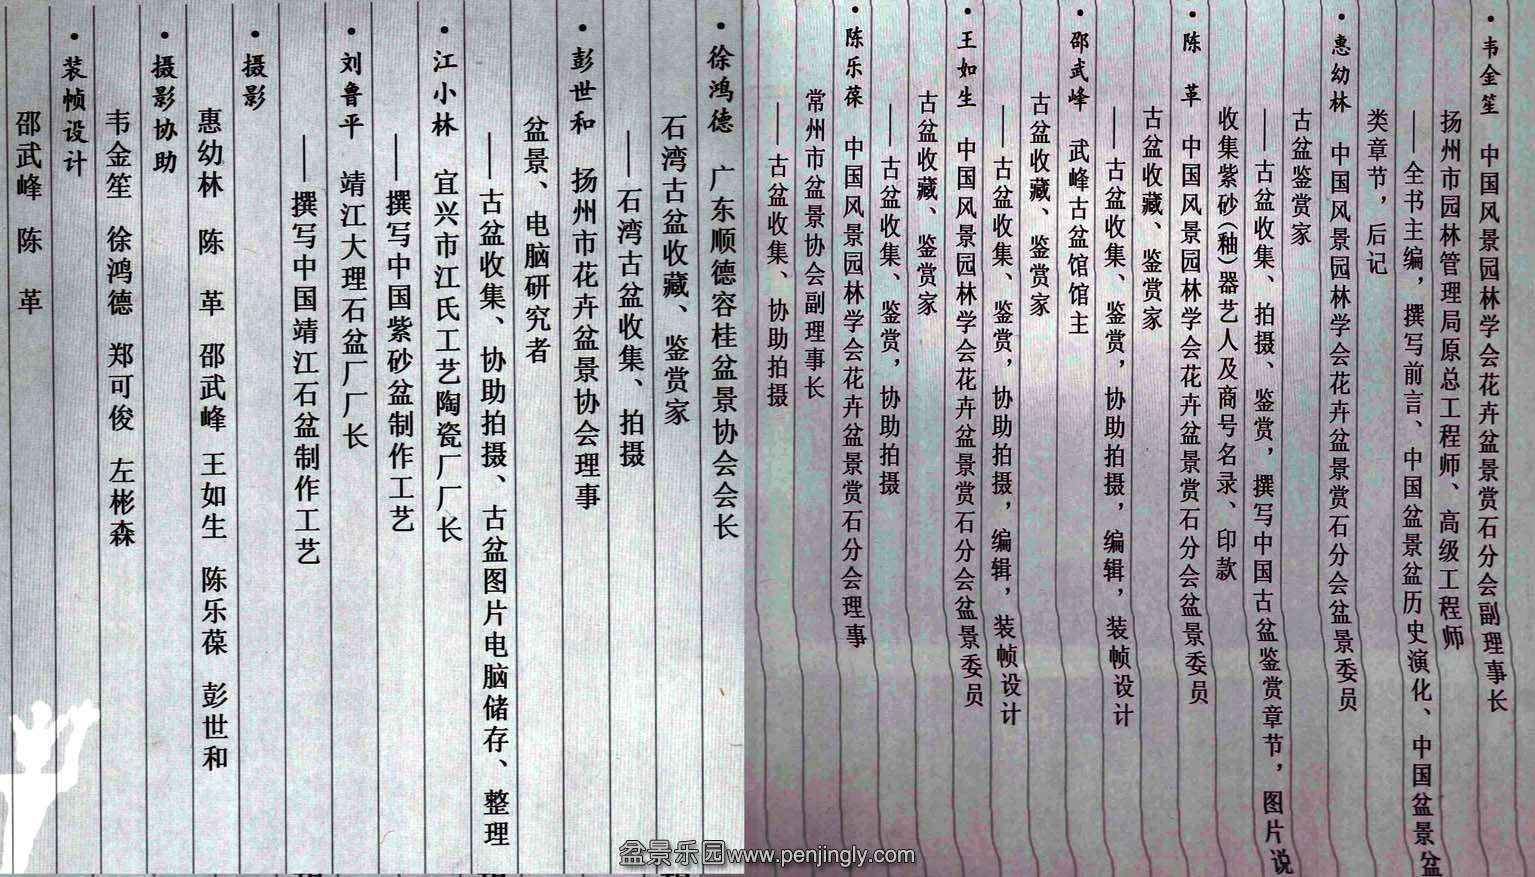 •韦金笙　中国风景园林学会花卉盆景赏石分会副理事长
扬州市园林管理局原总工程师、高级工程师
——全书主编，撰写前言、中国盆景盆历史演化、中国盆景盆
类章节，后记
•惠幼林　中国风景园林学会花卉盆景赏石分会盆景委员
古盆鉴赏家
——古盆收集、拍摄、鉴赏，撰写中国古盆鉴赏章节，图片说
收集紫砂（釉）器艺人及商号名录、印款
•陈　革　中国风景园林学会花卉盆景赏石分会盆景委员
古盆收藏、鉴赏家
——古盆收集、鉴赏，协助拍摄，编辑，装帧设计
•邵武峰　武峰古盆馆馆主
古盆收藏、鉴赏家
——古盆收集、鉴赏，协助拍摄，编辑，装帧设计
•王如生　中国风景园林学会花卉盆景赏石分会盆景委员
古盆收藏、鉴赏家
——古盆收集、鉴赏，协助拍摄
•陈乐葆　中国风景园林学会花卉盆景赏石分会理事
常州市盆景协会副理事长
——古盆收集、协助拍摄
•徐鸿德　广东顺德容桂盆景协会会长
石湾古盆收藏、鉴赏家
——石湾古盆收集、拍摄
•彭世和　扬州市花卉盆景协会理事
盆景、电脑研究者
——古盆收集、协助拍摄、古盆图片电脑储存、整理
•江小林　宜兴市江氏工艺陶瓷厂厂长
——撰写中国紫砂盆制作工艺
•刘鲁平　靖江大理石盆厂厂长
——撰写中国靖江石盆制作工艺
•摄影
惠幼林　陈　革　邵武峰　王如生　陈乐葆　彭世和
•摄影协助
韦金笙　徐鸿德　郑可俊　左彬森
•装帧设计
邵武峰　陈　革
盆景乐园www.penjingly.com